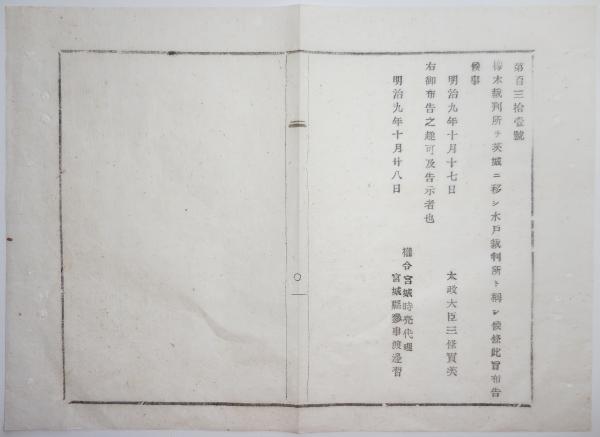 第百三拾壹號
栃木裁判所ヲ茨城ニ移シ水戸裁判所ト稱シ候條此旨布告
候事
明治九年十月十七日
太政大臣三條實美
右御布告之趣可及告示者也
明治九年十月廿八日
權令宮城時亮代理
宮城縣參事渡邊